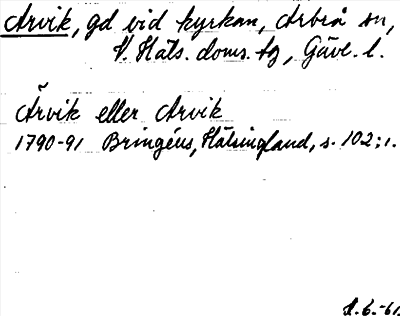 Arvik, gd vid kyrkan, Arbrå sn,
V. Häls. doms. tg, Gävl. l.
Årvik eller Arvik
1790-91 Bringéus, Hälsingland, s. 102; 1.
1.6.-61.